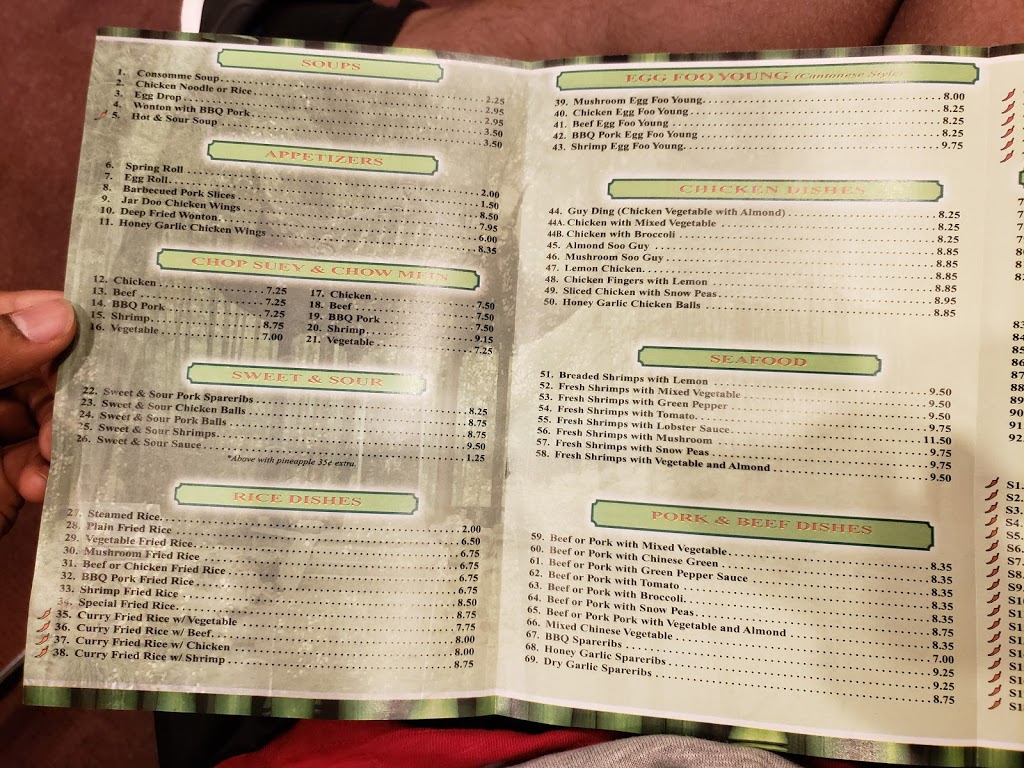 SOUPS
1. Consomme Soup 2.25
2. Chicken Noodle or Rice 2.95
3. Egg Drop 2.95
4. Wonton with BBQ Pork 3.50
5. Hot & Sour Soup 3.50
APPETIZERS
6. Spring Roll 2.00
7. Egg Roll 1.50
8. Barbecued Pork Slices 8.50
9. Jar Doo Chicken Wings 7.95
10. Deep Fried Wonton 6.00
11. Honey Garlic Chicken Wings 8.35
CHOP SUEY & CHOW MEIN
12. Chicken 7.25 17. Chicken 7.50
13. Beef 7.25 18. Beef 7.50
14. BBQ Pork 7.25 19. BBQ Pork 7.50
15. Shrimp 8.75 20. Shrimp 9.15
16. Vegetable 7.00 21. Vegetable 7.25
SWEET & SOUR
22. Sweet & Sour Pork Spareribs 8.25
23. Sweet & Sour Chicken Balls 8.75
24. Sweet & Sour Pork Balls 8.75
25. Sweet & Sour Shrimps 9.50
26. Sweet & Sour Sauce 1.25
*Above with pineapple 35¢ extra.
RICE DISHES
27. Steamed Rice 2.00
28. Plain Fried Rice 6.50
29. Vegetable Fried Rice 6.75
30. Mushroom Fried Rice 6.75
31. Beef or Chicken Fried Rice 6.75
32. BBQ Pork Fried Rice 6.75
33. Shrimp Fried Rice 8.50
34. Special Fried Rice 8.75
35. Curry Fried Rice w/ Vegetable 7.75
36. Curry Fried Rice w/ Beef 8.00
37. Curry Fried Rice w/ Chicken 8.00
38. Curry Fried Rice w/ Shrimp 8.75
EGG FOO YOUNG (Cantonese Style)
39. Mushroom Egg Foo Young 8.00
40. Chicken Egg Foo Young 8.25
41. Beef Egg Foo Young 8.25
42. BBQ Pork Egg Foo Young 8.25
43. Shrimp Egg Foo Young 9.75
CHICKEN DISHES
44. Guy Ding (Chicken Vegetable with Almond) 8.25
44A. Chicken with Mixed Vegetable 8.25
44B. Chicken with Broccoli 8.25
45. Almond Soo Guy 8.85
46. Mushroom Soo Guy 8.85
47. Lemon Chicken 8.85
48. Chicken Fingers with Lemon 8.85
49. Sliced Chicken with Snow Peas 8.95
50. Honey Garlic Chicken Balls 8.85
SEAFOOD
51. Breaded Shrimps with Lemon 9.50
52. Fresh Shrimps with Mixed Vegetable 9.50
53. Fresh Shrimps with Green Pepper 9.50
54. Fresh Shrimps with Tomato 9.75
55. Fresh Shrimps with Lobster Sauce 11.50
56. Fresh Shrimps with Mushroom 9.75
57. Fresh Shrimps with Snow Peas 9.75
58. Fresh Shrimps with Vegetable and Almond 9.50
PORK & BEEF DISHES
59. Beef or Pork with Mixed Vegetable 8.35
60. Beef or Pork with Chinese Green 8.35
61. Beef or Pork with Green Pepper Sauce 8.35
62. Beef or Pork with Tomato 8.35
63. Beef or Pork with Broccoli 8.35
64. Beef or Pork with Snow Peas 8.75
65. Beef or Pork Pork with Vegetable and Almond 8.35
66. Mixed Chinese Vegetable 7.00
67. BBQ Spareribs 9.25
68. Honey Garlic Spareribs 9.25
69. Dry Garlic Spareribs 8.75
83
84
85
86
87
88
89
90
91
92
S1.
S2.
S3.
S4.
S5.
S6.
S7.
S8.
S9.